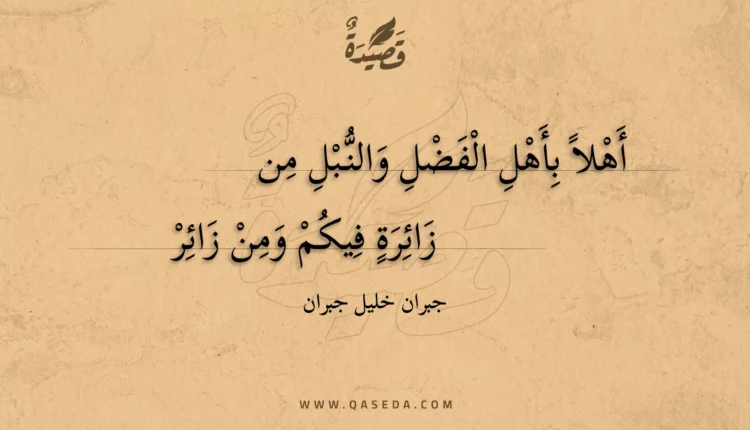 قَصِيْدَةٌ
أَهْلاً بِأَهْلِ الْفَضْلِ وَالنُّبْلِ مِن
زَائِرَةٍ فِيكُمْ وَمِنْ زَائِرْ
جبران خليل جبران
WWW.QASEDA.COM